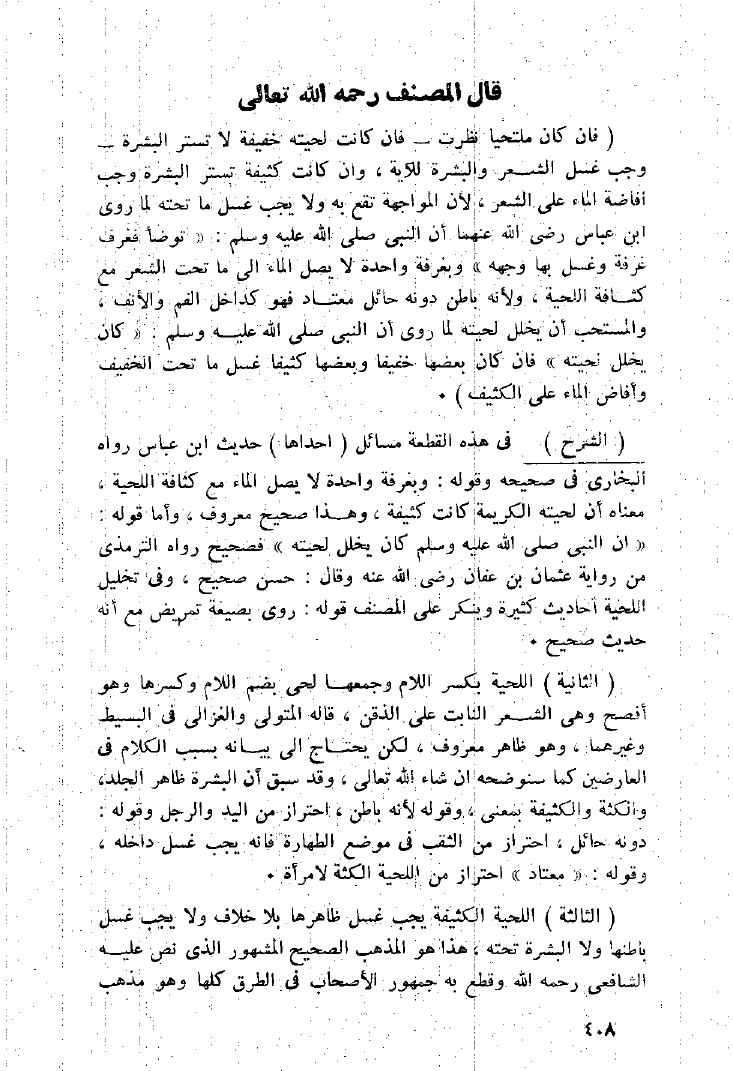 قال المصنف رحمه الله تعالى
( فان كان ملتحيا نظرت ــ فان كانت لحيته خفيفة لا تستر البشرة ــ
وجب غسل الشعر والبشرة للآية ، وان كانت كثيفة تستر البشرة وجب
أفاضة الماء على الشعر ، لأن المواجهة تقع به ولا يجب غسل ما تحته لما روى
ابن عباس رضى الله عنهما أن النبى صلى الله عليه وسلم : « توضأ فغرف
غرفة وغسل بها وجهه » وبغرفة واحدة لا يصل الماء الى ما تحت الشعر مع
كثافة اللحية ، ولأنه باطن دونه حائل معتاد فهو كداخل الفم والأنف ،
والمستحب أن يخلل لحيته لما روى أن النبى صلى الله عليه وسلم : « كان
يخلل لحيته » فان كان بعضها خفيفا وبعضها كثيفا غسل ما تحت الخفيف
وأفاض الماء على الكثيف ) ٠
( الشرح ) فى هذه القطعة مسائل ( احداها ) حديث ابن عباس رواه
البخارى فى صحيحه وقوله : وبغرفة واحدة لا يصل الماء مع كثافة اللحية ،
معناه أن لحيته الكريمة كانت كثيفة ، وهذا صحيح معروف ، وأما قوله :
« ان النبى صلى الله عليه وسلم كان يخلل لحيته » فصحيح رواه الترمذى
من رواية عثمان بن عفان رضى الله عنه وقال : حسن صحيح ، وفى تخليل
اللحية أحاديث كثيرة وينكر على المصنف قوله : روى بصيغة تمريض مع أنه
حديث صحيح ٠
( الثانية ) اللحية بكسر اللام وجمعها لحى بضم اللام وكسرها وهو
أفصح وهى الشعر النابت على الذقن ، قاله المتولى والغزالى فى البسيط
وغيرهما ، وهو ظاهر معروف ، لكن يحتاج الى بيانه بسبب الكلام فى
العارضين كما سنوضحه ان شاء الله تعالى ، وقد سبق أن البشرة ظاهر الجلد،
والكثة والكثيفة بمعنى ، وقوله لأنه باطن ، احتراز من اليد والرجل وقوله :
دونه حائل ، احتراز من الثقب فى موضع الطهارة فانه يجب غسل داخله ،
وقوله : « معتاد » احتراز من اللحية الكثة لامرأة ٠
( الثالثة ) اللحية الكثيفة يجب غسل ظاهرها بلا خلاف ولا يجب غسل
باطنها ولا البشرة تحته ، هذا هو المذهب الصحيح المشهور الذى نص عليه
الشافعى رحمه الله وقطع به جمهور الأصحاب فى الطرق كلها وهو مذهب
٤٠٨